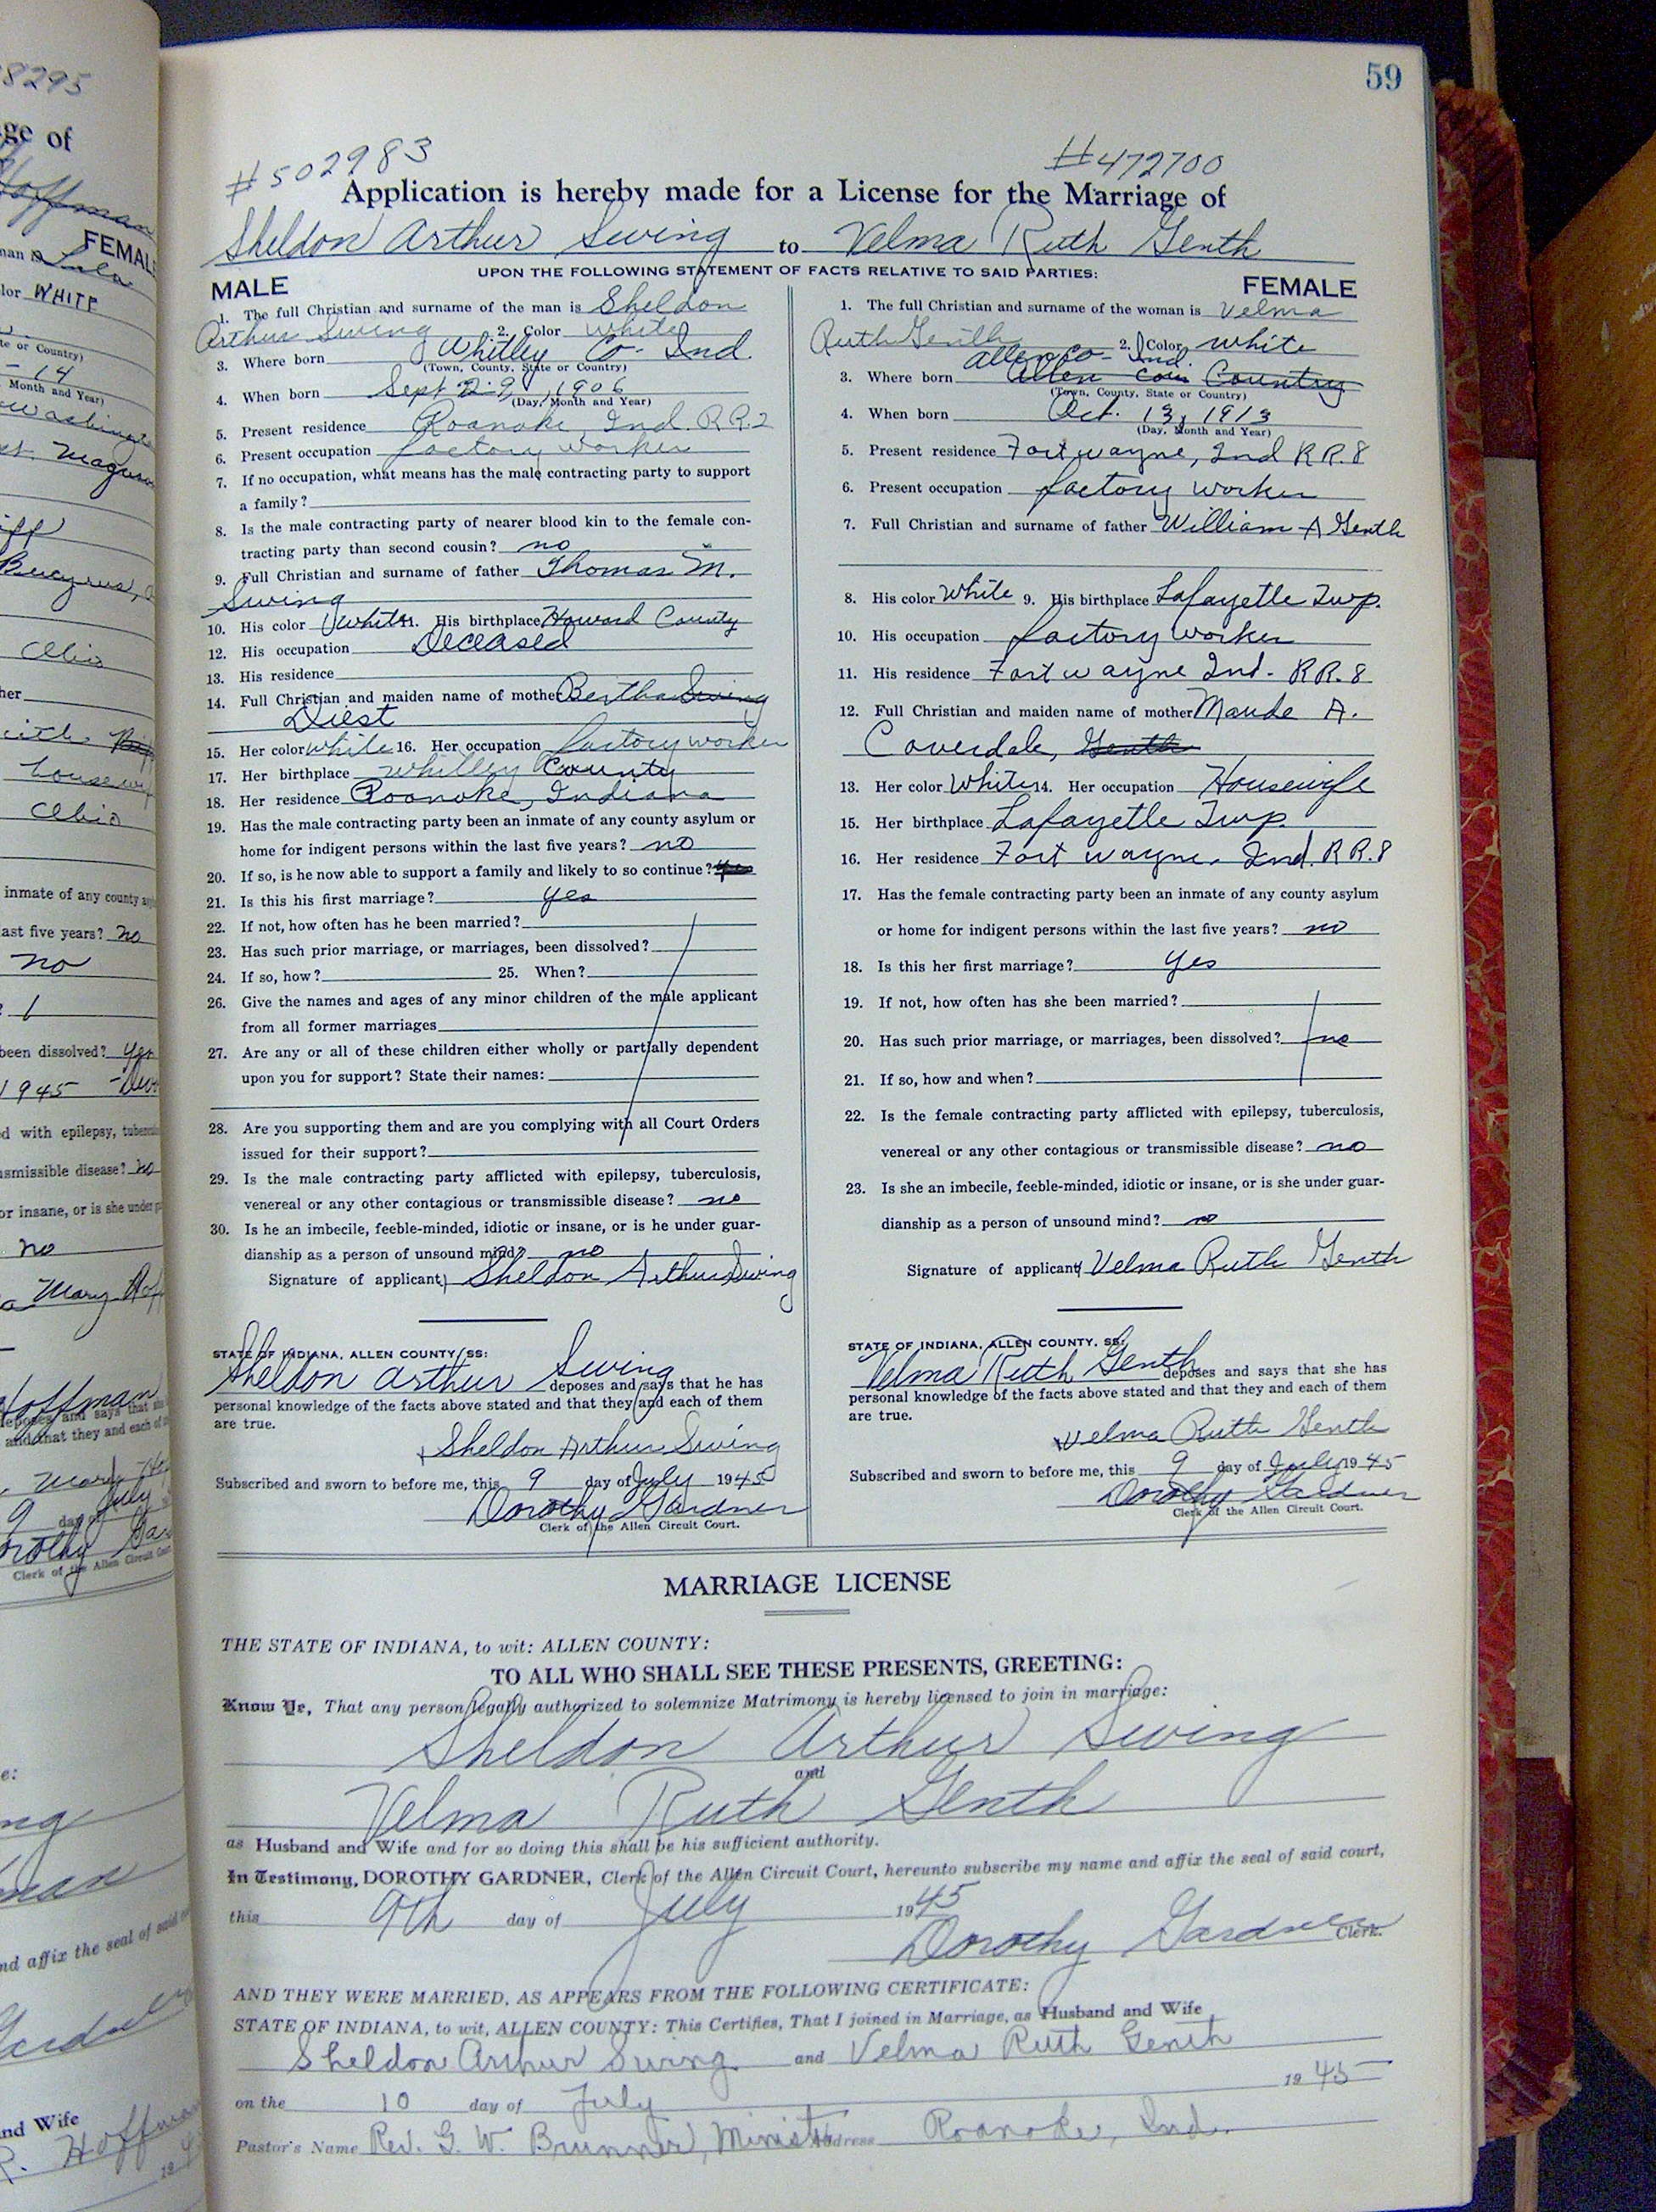 59
#502983 #472700
Application is hereby made for a License for the Marriage of
Sheldon Arthur Swing to Velma Ruth Genth
UPON THE FOLLOWING STATEMENT OF FACTS RELATIVE TO SAID PARTIES:
MALE
1. The full Christian and surname of the man is Sheldon
Arthur Swing 2. Color white
3. Where born Whitley Co. Ind.
(Town, County, State or Country)
4. When born Sept 29, 1906
(Day, Month and Year)
5. Present residence Roanoke, Ind. R R. 2
6. Present occupation factory worker
7. If no occupation, what means has the male contracting party to support
a family?
8. Is the male contracting party of nearer blood kin to the female con-
tracting party than second cousin? no
9. Full Christian and surname of father Thomas M.
Swing
10. His color white 11. His birthplace Howard County
12. His occupation Deceased
13. His residence
14. Full Christian and maiden name of mother Bertha Swing
Diest
15. Her color white 16. Her occupation factory worker
17. Her birthplace Whitley County
18. Her residence Roanoke, Indiana
19. Has the male contracting party been an inmate of any county asylum or
home for indigent persons within the last five years? no
20. If so, is he now able to support a family and likely to so continue? yes
21. Is this his first marriage? yes
22. If not, how often has he been married?
23. Has such prior marriage, or marriages, been dissolved?
24. If so, how? 25. When?
26. Give the names and ages of any minor children of the male applicant
from all former marriages
27. Are any or all of these children either wholly or partially dependent
upon you for support? State their names:
28. Are you supporting them and are you complying with all Court Orders
issued for their support?
29. Is the male contracting party afflicted with epilepsy, tuberculosis,
venereal or any other contagious or transmissible disease? no
30. Is he an imbecile, feeble-minded, idiotic or insane, or is he under guar-
dianship as a person of unsound mind? no
Signature of applicant Sheldon Arthur Swing
STATE OF INDIANA, ALLEN COUNTY, SS:
Sheldon Arthur Swing deposes and says that he has
personal knowledge of the facts above stated and that they and each of them
are true.
Sheldon Arthur Swing
Subscribed and sworn to before me, this 9 day of July 1945
Dorothy Gardner
Clerk of the Allen Circuit Court.
FEMALE
1. The full Christian and surname of the woman is Velma
Ruth Genth 2. Color white
Allen Co- Ind
3. Where born Allen Country
(Town, County, State or Country)
4. When born Oct. 13, 1913
(Day, Month and Year)
5. Present residence Fort wayne, Ind R R. 8
6. Present occupation factory worker
7. Full Christian and surname of father William A Genth
8. His color white 9. His birthplace Lafayette Twp.
10. His occupation factory worker
11. His residence Fort wayne Ind. R R. 8
12. Full Christian and maiden name of mother Maude A.
Coverdale, Genth
13. Her color White 14. Her occupation Housewife
15. Her birthplace Lafayette Twp.
16. Her residence Fort wayne, Ind. R R. 8
17. Has the female contracting party been an inmate of any county asylum
or home for indigent persons within the last five years? no
18. Is this her first marriage? yes
19. If not, how often has she been married?
20. Has such prior marriage, or marriages, been dissolved? no
21. If so, how and when?
22. Is the female contracting party afflicted with epilepsy, tuberculosis,
venereal or any other contagious or transmissible disease? no
23. Is she an imbecile, feeble-minded, idiotic or insane, or is she under guar-
dianship as a person of unsound mind? no
Signature of applicant Velma Ruth Genth
STATE OF INDIANA, ALLEN COUNTY, SS:
Velma Ruth Genth deposes and says that she has
personal knowledge of the facts above stated and that they and each of them
are true.
Velma Ruth Genth
Subscribed and sworn to before me, this 9 day of July 1945
Dorothy Gardner
Clerk of the Allen Circuit Court.
MARRIAGE LICENSE
THE STATE OF INDIANA, to wit: ALLEN COUNTY:
TO ALL WHO SHALL SEE THESE PRESENTS, GREETING:
Know Ye, That any person legally authorized to solemnize Matrimony is hereby licensed to join in marriage:
Sheldon Arthur Swing
and
Velma Ruth Genth
as Husband and Wife and for so doing this shall be his sufficient authority.
In Testimony, DOROTHY GARDNER, Clerk of the Allen Circuit Court, hereunto subscribe my name and affix the seal of said court,
this 9th day of July 1945
Dorothy Gardner Clerk.
AND THEY WERE MARRIED, AS APPEARS FROM THE FOLLOWING CERTIFICATE:
STATE OF INDIANA, to wit, ALLEN COUNTY: This Certifies, That I joined in Marriage, as Husband and Wife
Sheldon Arthur Swing and Velma Ruth Genth
on the 10 day of July 1945
Pastor's Name Rev. G. W. Brunner, Minister Address Roanoke, Ind.